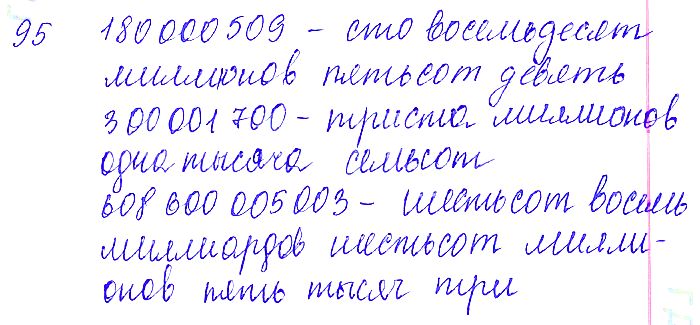 95 180 000 509 – сто восемьдесят
миллионов пятьсот девять
300 001 700 – триста миллионов
одна тысяча семьсот
608 600 005 003 – шестьсот восемь
миллиардов шестьсот милли-
онов пять тысяч три